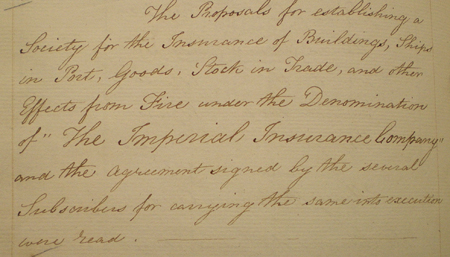 The Proposals for establishing a
Society for the Insurance of Buildings, Ships
in Port, Goods, Stock in Trade, and other
Effects from Fire under the Denomination
of "The Imperial Insurance Company"
and the Agreement signed by the several
Subscribers for carrying the same into execution
were read.